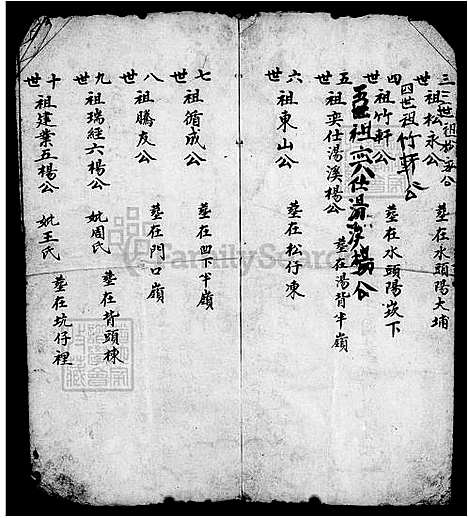 三世祖松永公
三世 祖松永公 墓在水頭陽大埔
四世祖竹軒公
四世 祖竹軒公 墓在水頭陽崁下
五世祖奕仕湯溪楊公
五世 祖奕仕湯溪楊公 墓在湯背半嶺
六世 祖東山公 墓在松仔凍
七世 祖循成公 墓在凹下半嶺
八世 祖騰友公 墓在門口嶺
九世 祖瑞經六楊公 妣周氏 墓在背頭棟
十世 祖建業五楊公 妣王氏 墓在坑仔裡
FamilySearch